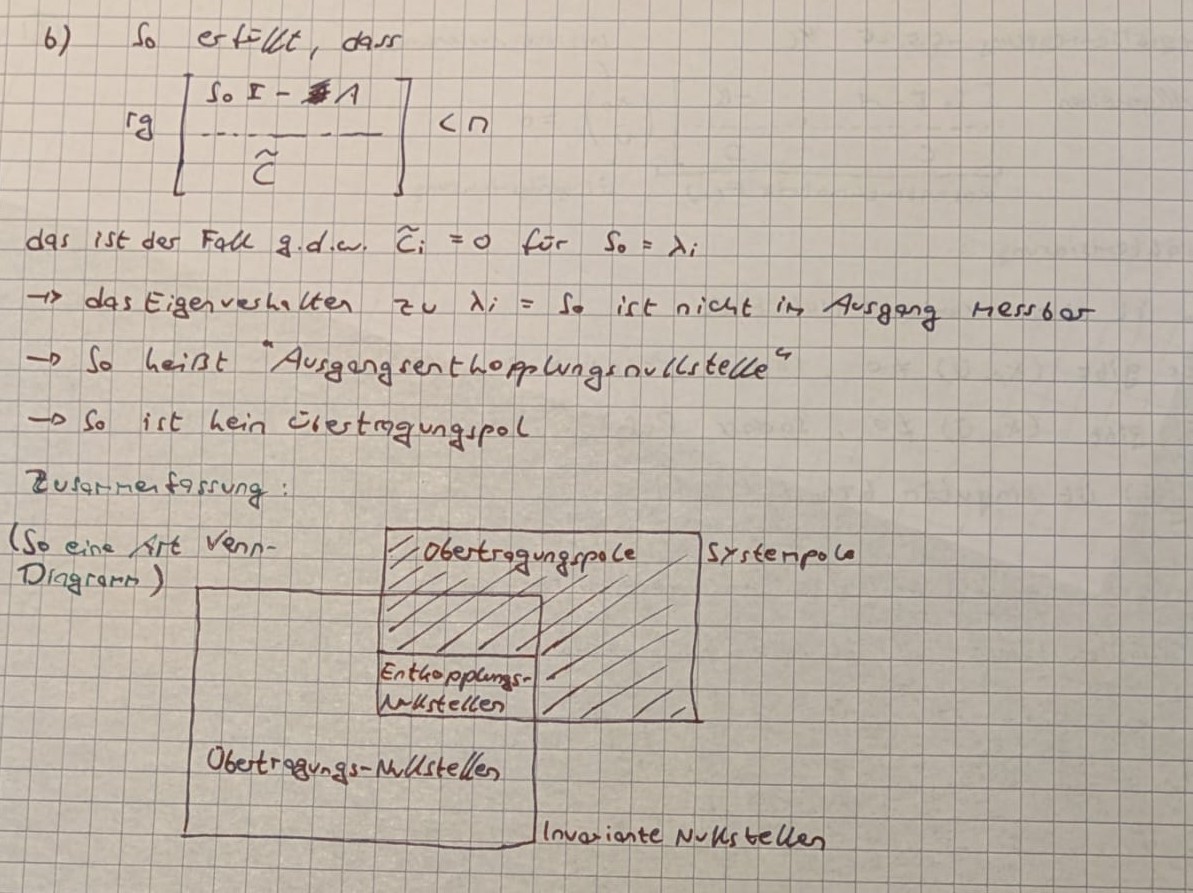 b) S₀ erfüllt, dass
rg [ S₀ I - A
C̃ ] < n
das ist der Fall g.d.w. C̃ᵢ = 0 für S₀ = λᵢ
→ das Eigenverhalten zu λᵢ = S₀ ist nicht im Ausgang messbar
→ S₀ heißt "Ausgangsentkopplungsnullstelle"
→ S₀ ist kein Übertragungspol
Zusammenfassung:
(So eine Art Venn-
Diagramm)
Übertragungspole
Systempole
Entkopplungs-
Nullstellen
Übertragungs-Nullstellen
Invariante Nullstellen